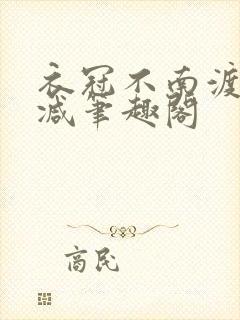 衣冠不南渡
减笔趣阁
商民